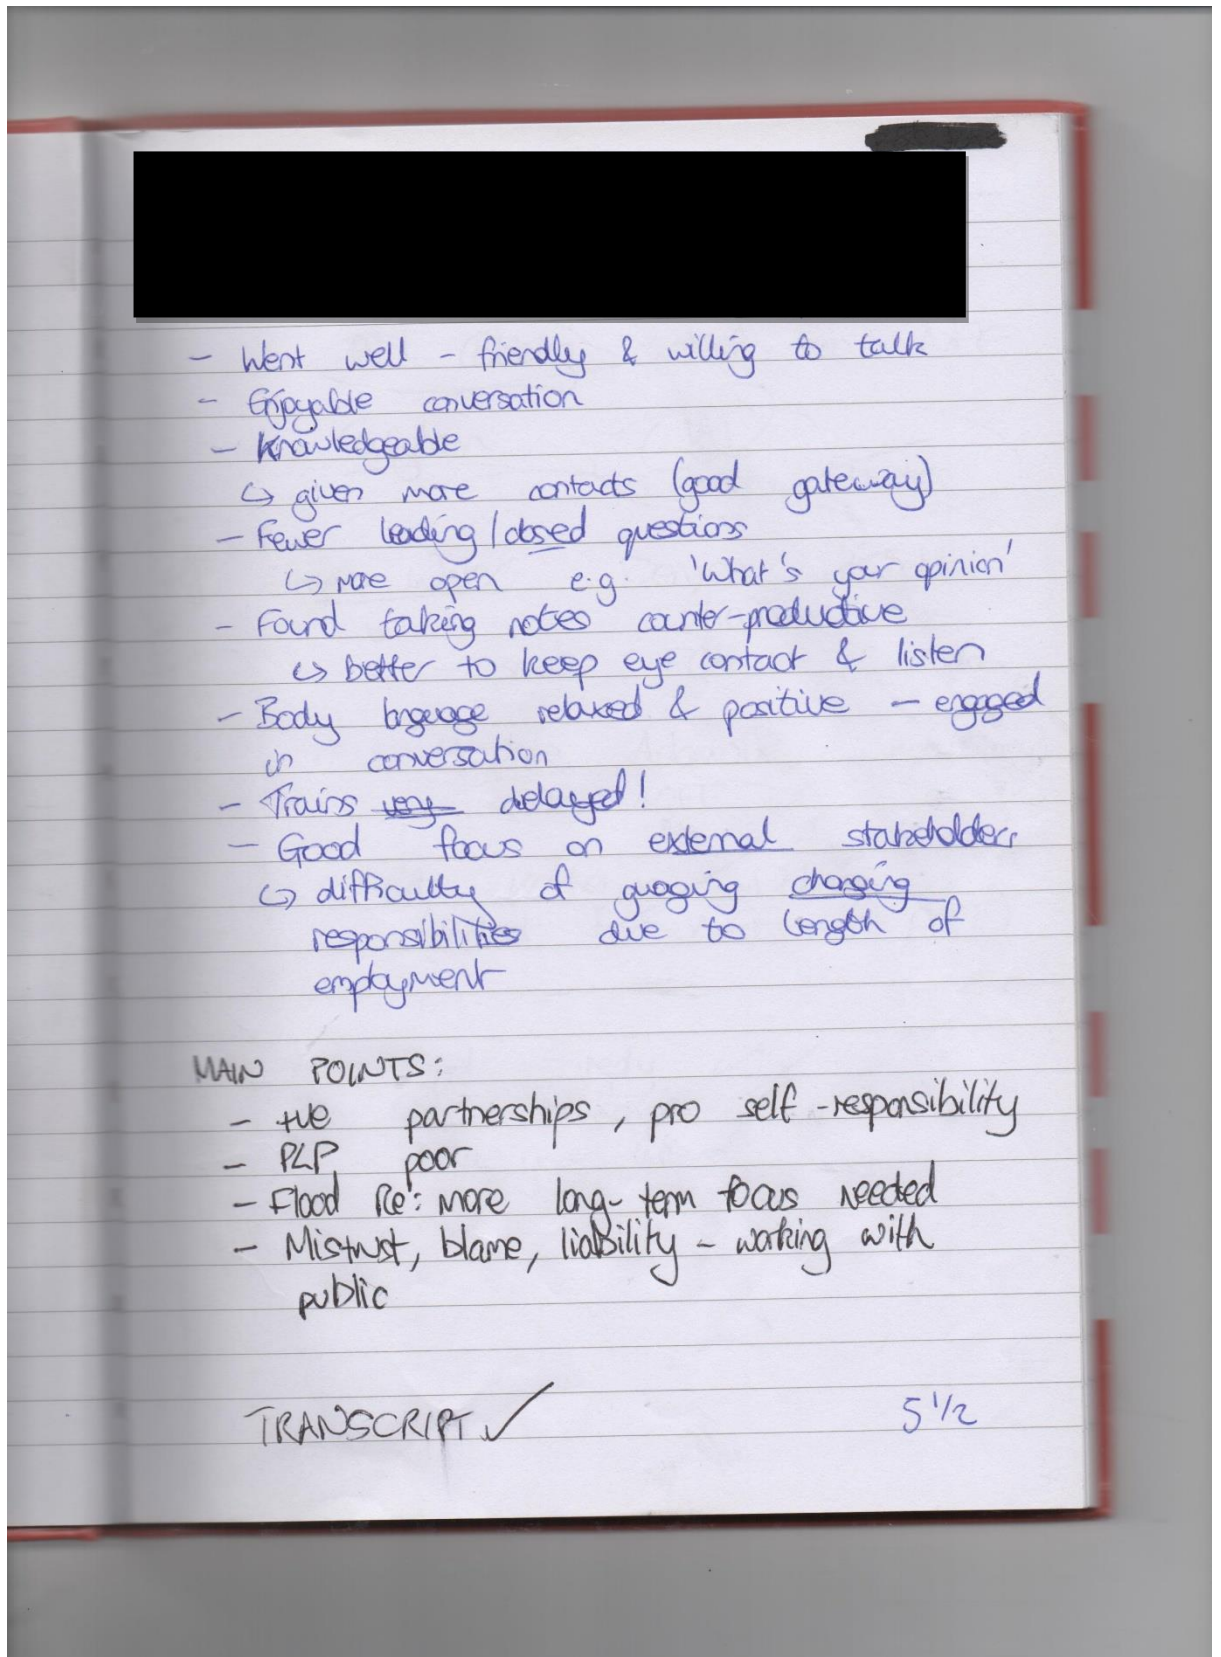 - Went well - friendly & willing to talk
- Enjoyable conversation
- Knowledgeable
↳ given more contacts (good gateway)
- Fewer leading/closed questions
↳ more open e.g. 'What's your opinion'
- Found taking notes counter-productive
↳ better to keep eye contact & listen
- Body language relaxed & positive - engaged
in conversation
- Trains very delayed!
- Good focus on external stakeholders
↳ difficulty of guaging changing
responsibilities due to length of
employment
MAIN POINTS:
- +ve partnerships, pro self-responsibility
- PLP poor
- Flood Re: more long-term focus needed
- Mistrust, blame, liability - working with
public
TRANSCRIPT ✓
5 1/2